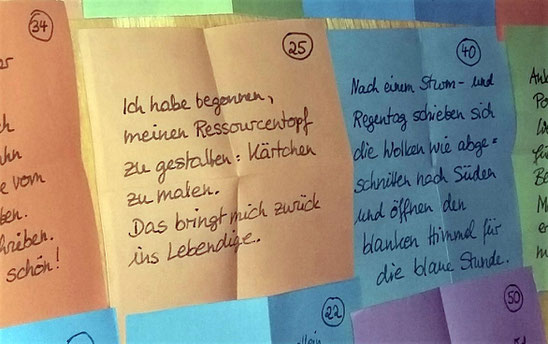 34
schön!
25
Ich habe begonnen,
meinen Ressourcentopf
zu gestalten: Kärtchen
zu malen.
Das bringt mich zurück
ins Lebendige.
40
Nach einem Sturm- und
Regentag schieben sich
die Wolken wie abge-
schnitten nach Süden
und öffnen den
blanken Himmel für
die blaue Stunde.
22
50